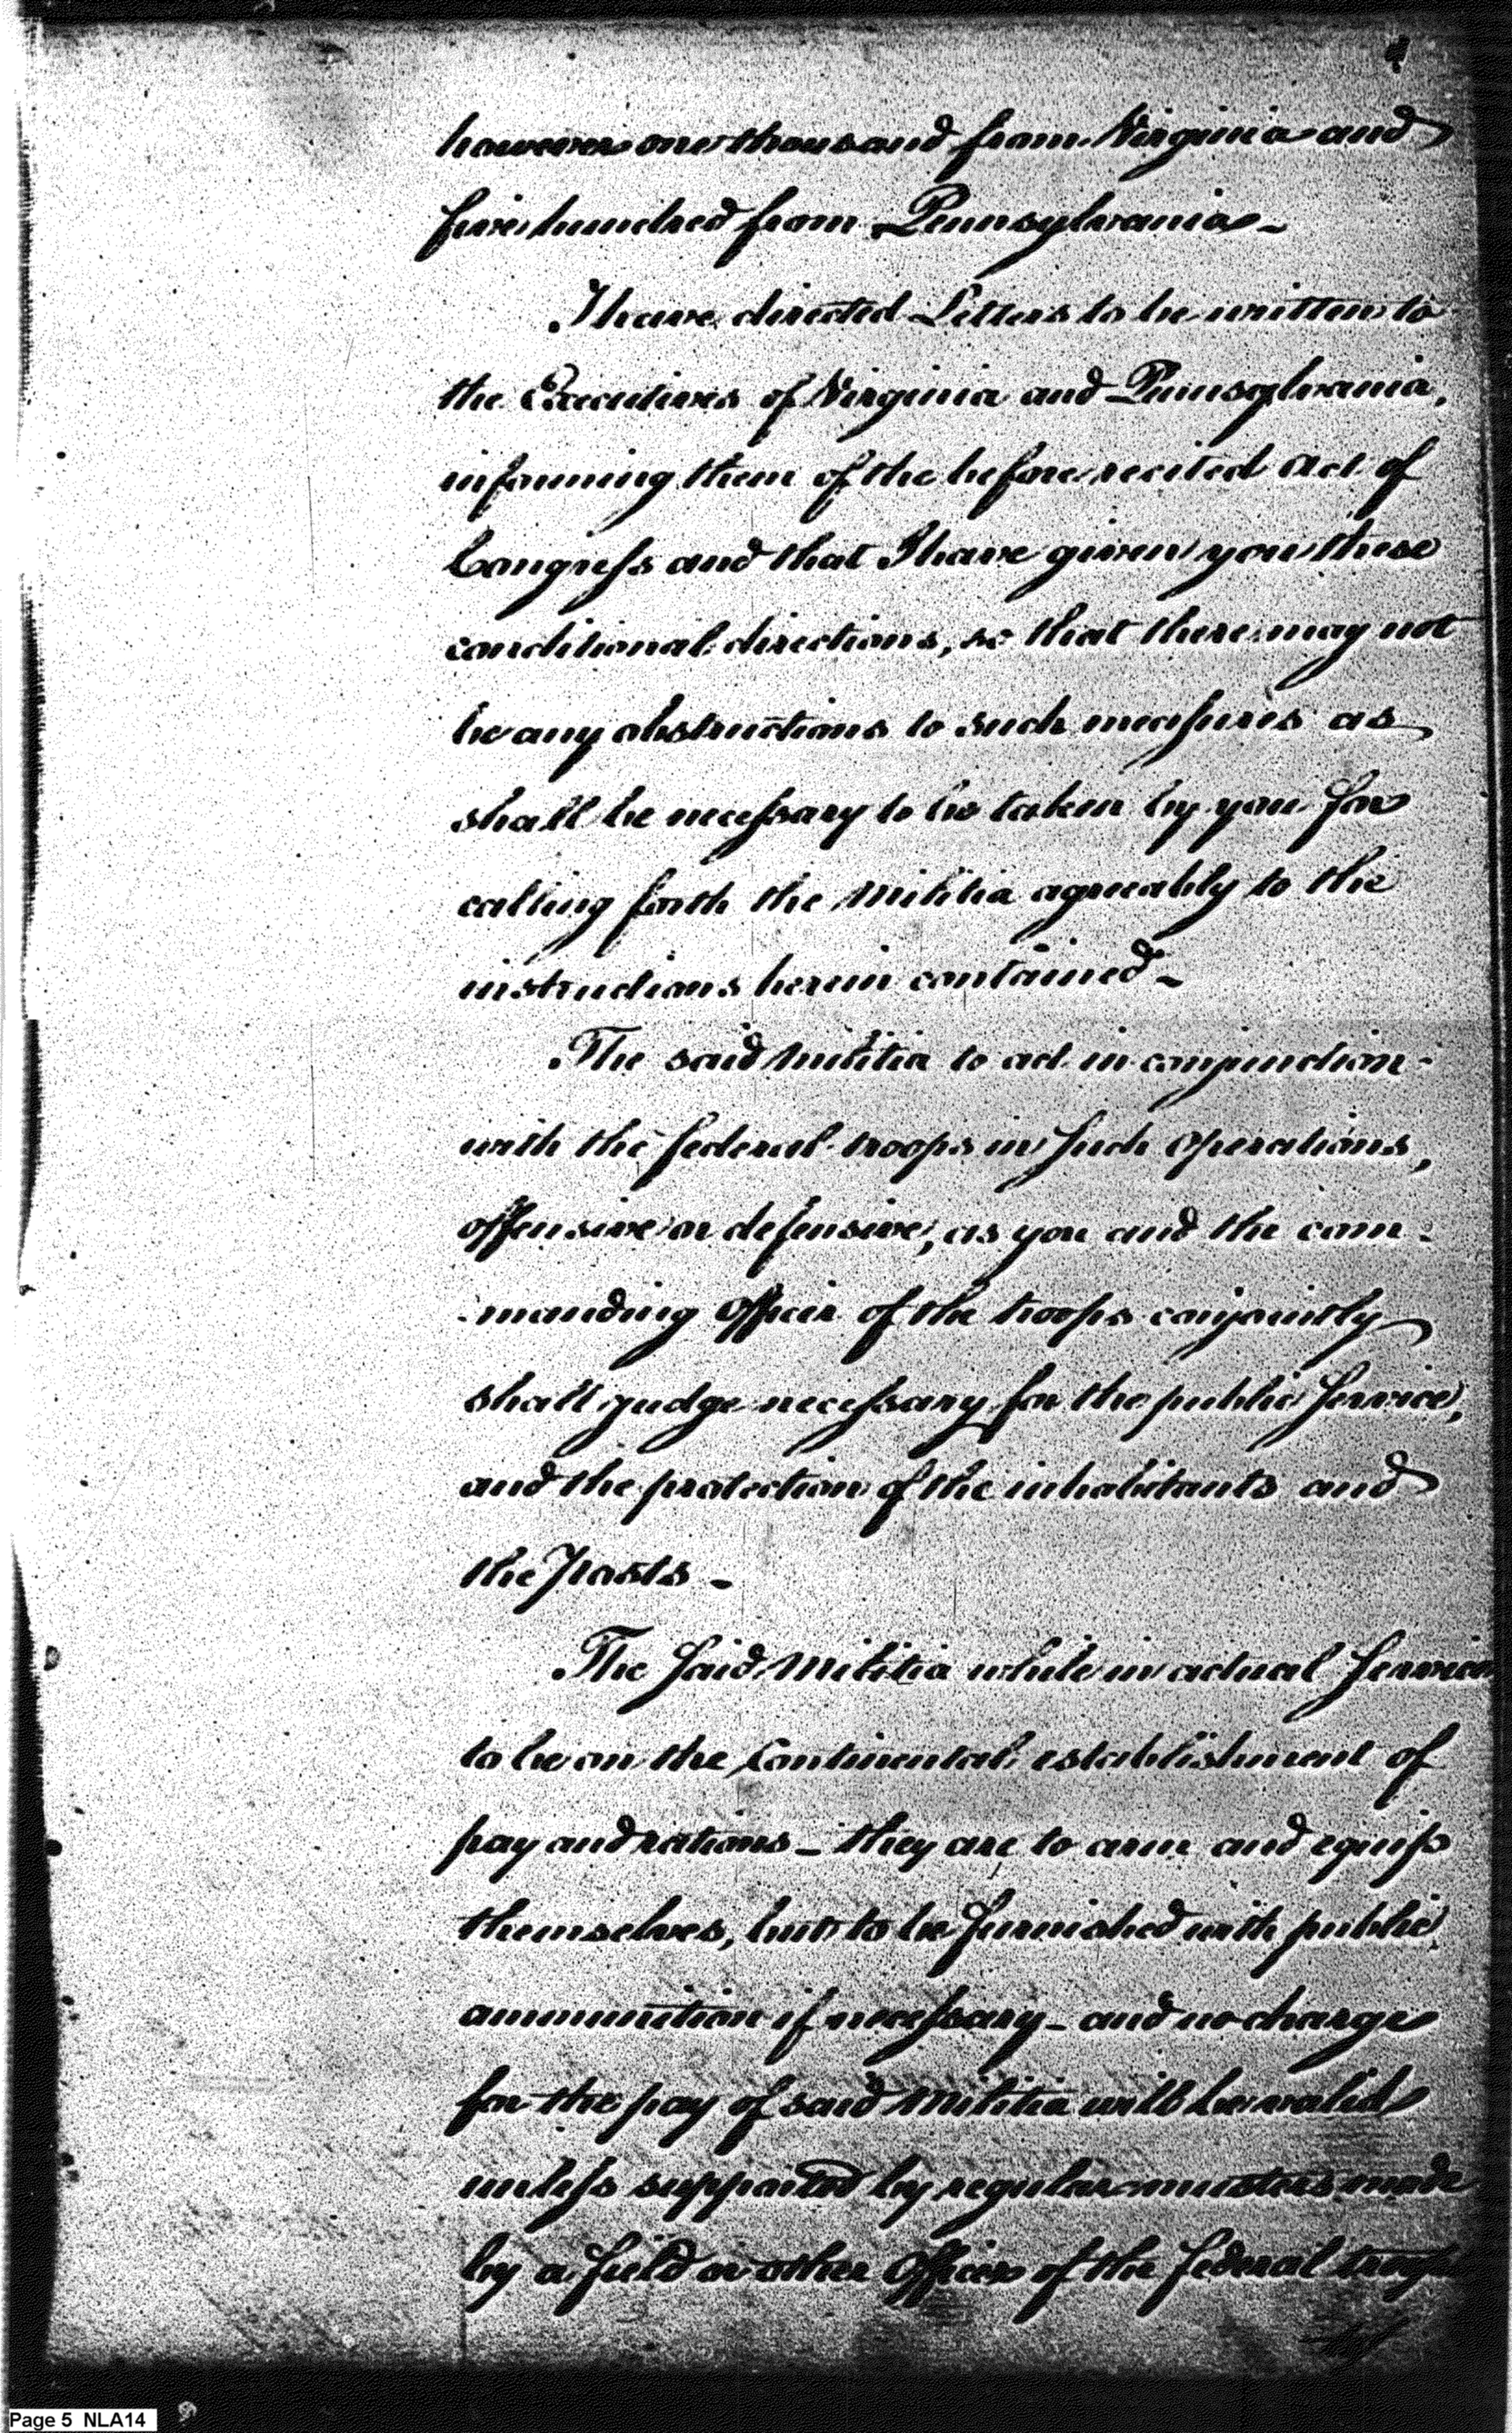 4
however one thousand from Virginia and
five hundred from Pennsylvania –
I have directed Letters to be written to
the Executives of Virginia and Pennsylvania,
informing them of the before recited act of
Congress and that I have given you these
conditional directions, so that there may not
be any obstructions to such measures as
shall be necessary to be taken by you for
calling forth the militia agreeably to the
instructions herein contained –
The said militia to act in conjunction
with the federal troops in such operations,
offensive or defensive, as you and the com-
-manding officer of the troops conjointly
shall judge necessary for the public service,
and the protection of the inhabitants and
the posts –
The said Militia while in actual service
to be on the Continental establishment of
pay and rations – they are to arm and equip
themselves, but to be furnished with public
ammunition if necessary – and no charge
for the pay of said Militia will be valid
unless supported by regular musters made
by a field or other Officer of the federal troops
Page 5 NLA14